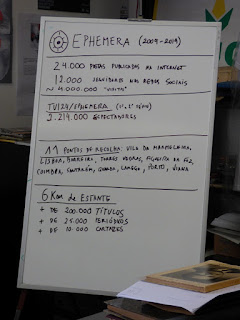 EPHEMERA (2009-2019)
24.000 PASTAS PUBLICADAS NA INTERNET
12.000 SEGUIDORES NAS REDES SOCIAIS
~ 4.000.000 "VISITAS"
TVI24/EPHEMERA (1ª, 2ª SÉRIE)
2.214.000 ESPECTADORES
11 PONTOS DE RECOLHA: VILA DA MARMELEIRA,
LISBOA, BARREIRO, TORRES VEDRAS, FIGUEIRA DA FOZ,
COIMBRA, SANTARÉM, GUARDA, LAMEGO, PORTO, VIANA
6 Km DE ESTANTE
+ DE 200.000 TÍTULOS
+ DE 25.000 PERIÓDICOS
+ DE 10.000 CARTAZES